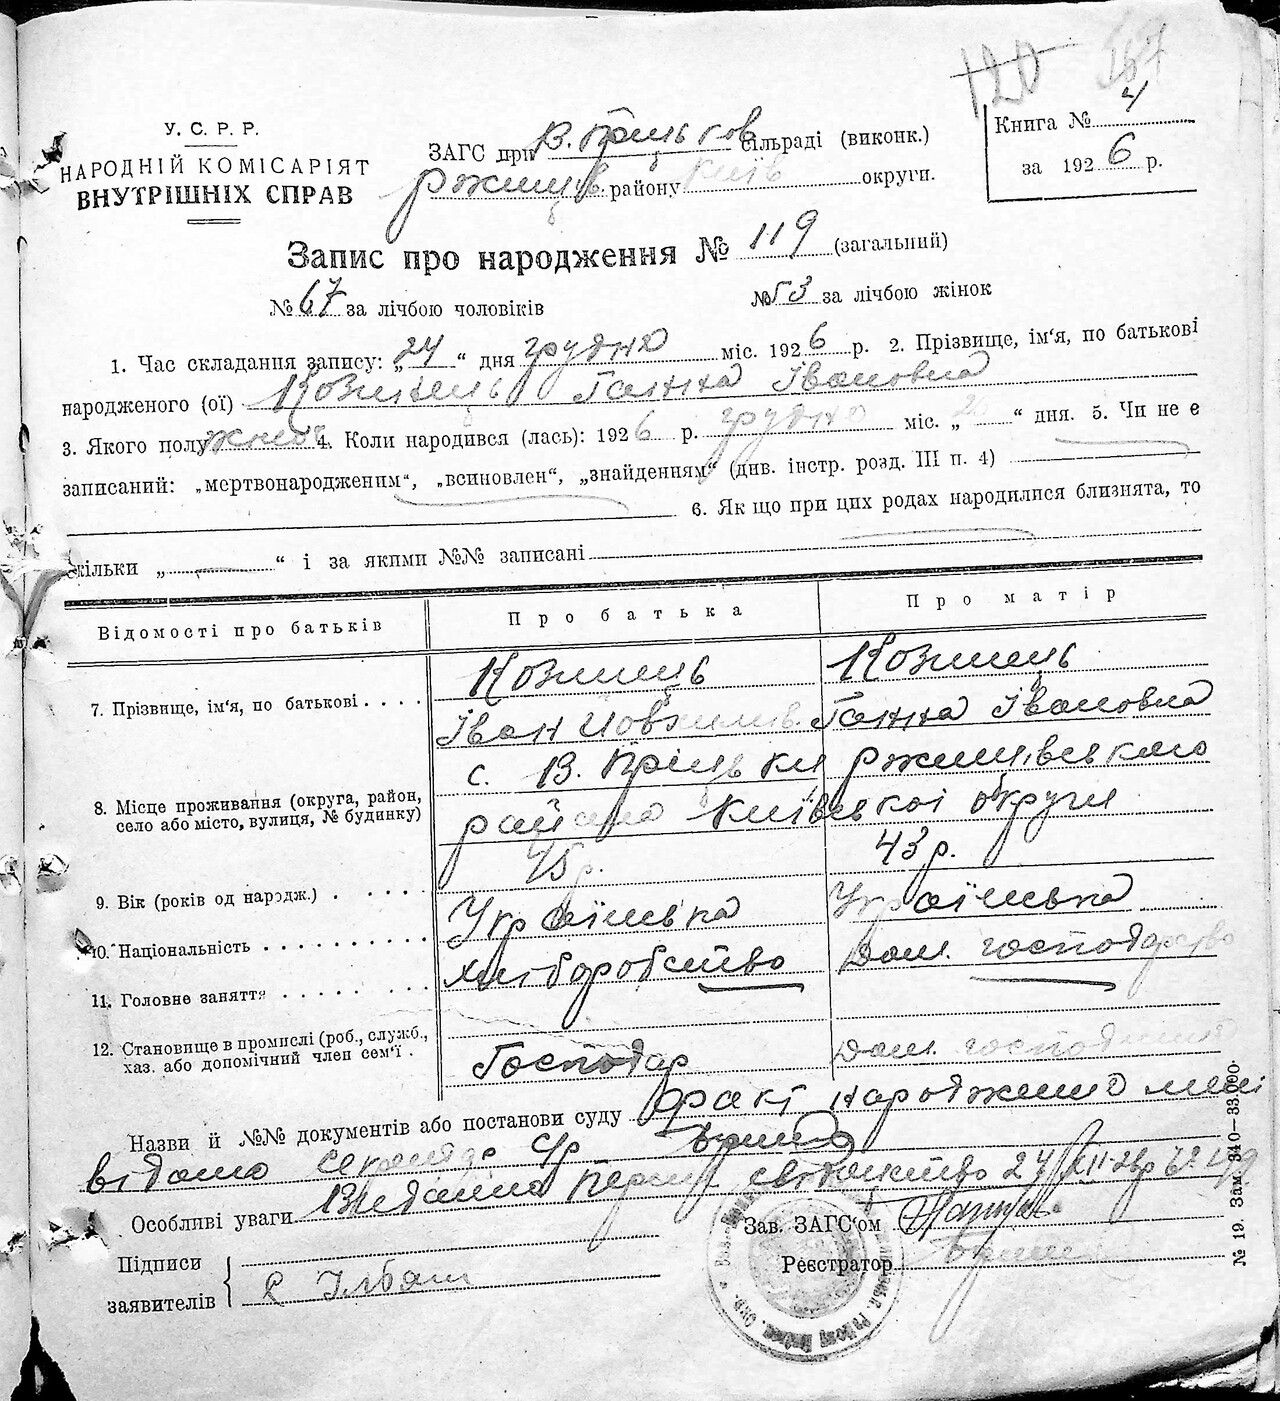 120 167
У. С. Р. Р.
НАРОДНІЙ КОМІСАРІЯТ
ВНУТРІШНІХ СПРАВ
ЗАГС при В. Пріцьков сільраді (виконк.)
Ржищів. району Київ округи.
Книга № 4
за 1926 р.
Запис про народження № 119 (загальний)
№ 67 за лічбою чоловіків № 53 за лічбою жінок
1. Час складання запису: „24“ дня грудня міс. 1926 р. 2. Прізвище, ім‘я, по батькові
народженого (ої) Ганна Івановна
3. Якого полу жноч 4. Коли народився (лась): 1926 р. грудня міс. „ “ дня. 5. Чи не є
записаний: „мертвонародженим“, „всиновлен“, „знайденням“ (див. інстр. розд. III п. 4)
6. Як що при цих родах народилися близнята, то
скільки „ “ і за якими №№ записані
Відомості про батьків Про батька Про матір
7. Прізвище, ім‘я, по батькові . . . .
Іван Ганна Івановна
8. Місце проживання (округа, район,
село або місто, вулиця, № будинку)
с. В. Пріцьки Ржищівського
району Київської округи
9. Вік (років од народж.) . . . . . 45 р. 43 р.
10. Національність . . . . . . . . . . Українська Українська
11. Головне заняття . . . . . . . хліборобство Дом. господарство
12. Становище в промислі (роб., служб.,
хаз. або допомічний член сем‘ї .
Господар Дом. господиня
Назви й №№ документів або постанови суду факт народження мені
відомо с/р
Особливі уваги Видано перше свідоцтво 24/XII-26р № 119
Підписи
заявителів
Зав. ЗАГС‘ом
Реєстратор
№ 19. Зам. 340—33.000.